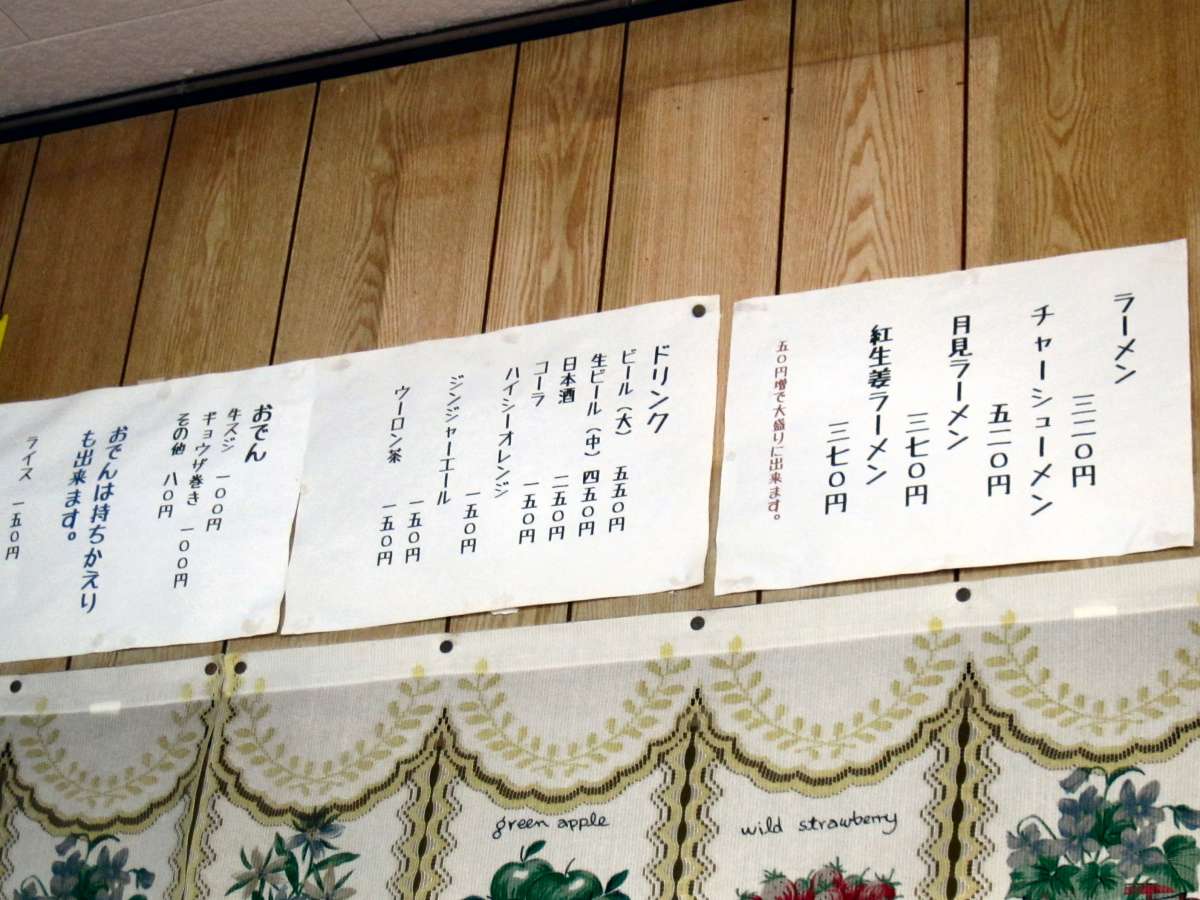 ラーメン 三二〇円
チャーシューメン 五二〇円
月見ラーメン 三七〇円
紅生姜ラーメン 三七〇円
五〇円増で大盛りに出来ます。
ドリンク
ビール（大） 五五〇円
生ビール（中） 四五〇円
日本酒 二五〇円
コーラ 一五〇円
ハイシーオレンジ 一五〇円
ジンジャーエール 一五〇円
ウーロン茶 一五〇円
おでん
牛スジ 一〇〇円
ギョウザ巻き 一〇〇円
その他 八〇円
おでんは持ちかえり
も出来ます。
ライス 一五〇円
green apple
wild strawberry